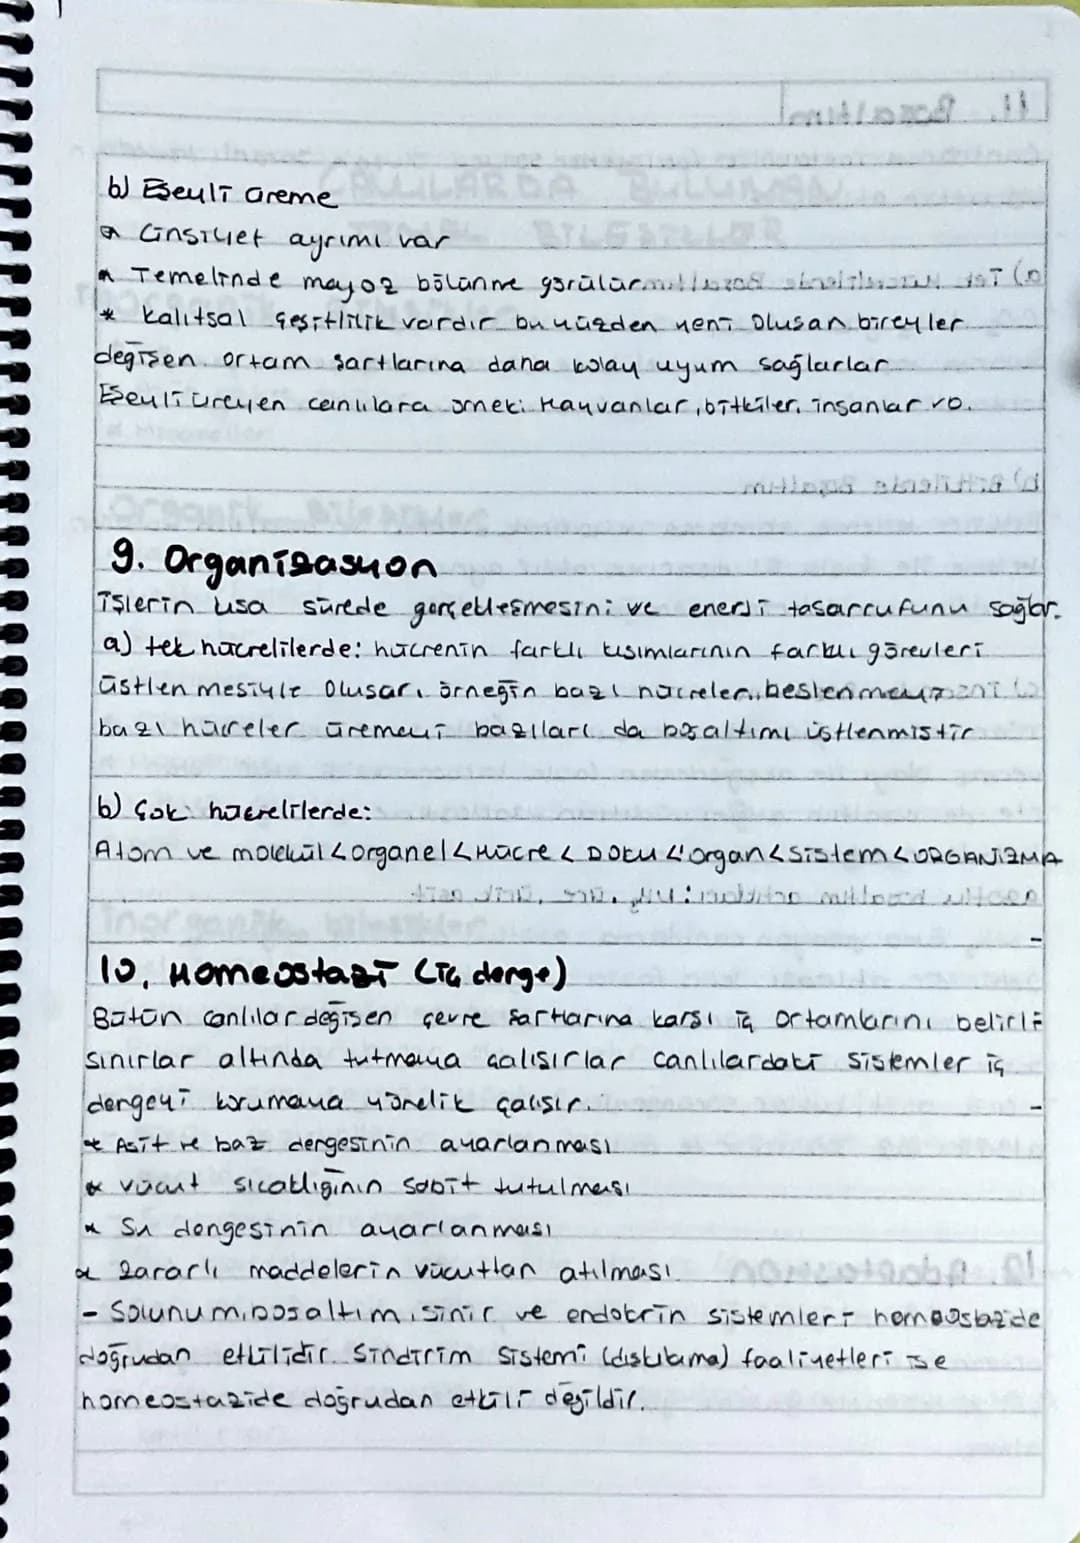 b) Eşeyli üreme
* Cinsiyet ayrımı var
* Temelinde mayoz bölünme görülür
* Kalıtsal çeşitlilik vardır bu yüzden yeni oluşan bireyler
değişen ortam şartlarına daha kolay uyum sağlarlar
Eşeyli üreyen canlılara örnek: Hayvanlar, bitkiler, insanlar vb.
9. Organizasyon
İşlerin kısa sürede gerçekleşmesini ve enerji tasarrufunu sağlar.
a) tek hücrelilerde: hücrenin farklı kısımlarının farklı görevleri
üstlenmesiyle oluşar, örneğin bazı hücreler beslenmeyi
bazı hücreler üremeyi bazıları da boşaltımı üstlenmiştir
b) Çok hücrelilerde:
Atom ve molekül < organel < Hücre < Doku < organ < Sistem < ORGANİZMA
10. Homeostazi (iç denge)
Bütün canlılar değişen çevre şartlarına karşı iç ortamlarını belirli
sınırlar altında tutmaya çalışırlar canlılardaki sistemler iç
dengeyi korumaya yönelik çalışır.
* Asit ve baz dengesinin ayarlanması
* vücut sıcaklığının sabit tutulması
* Su dengesinin ayarlanması
* zararlı maddelerin vücuttan atılması
- Solunum, boşaltım, sinir ve endokrin sistemleri homeostazide
doğrudan etkilidir. Sindirim sistemi (dışkılama) faaliyetleri ise
homeostazide doğrudan etkili değildir.